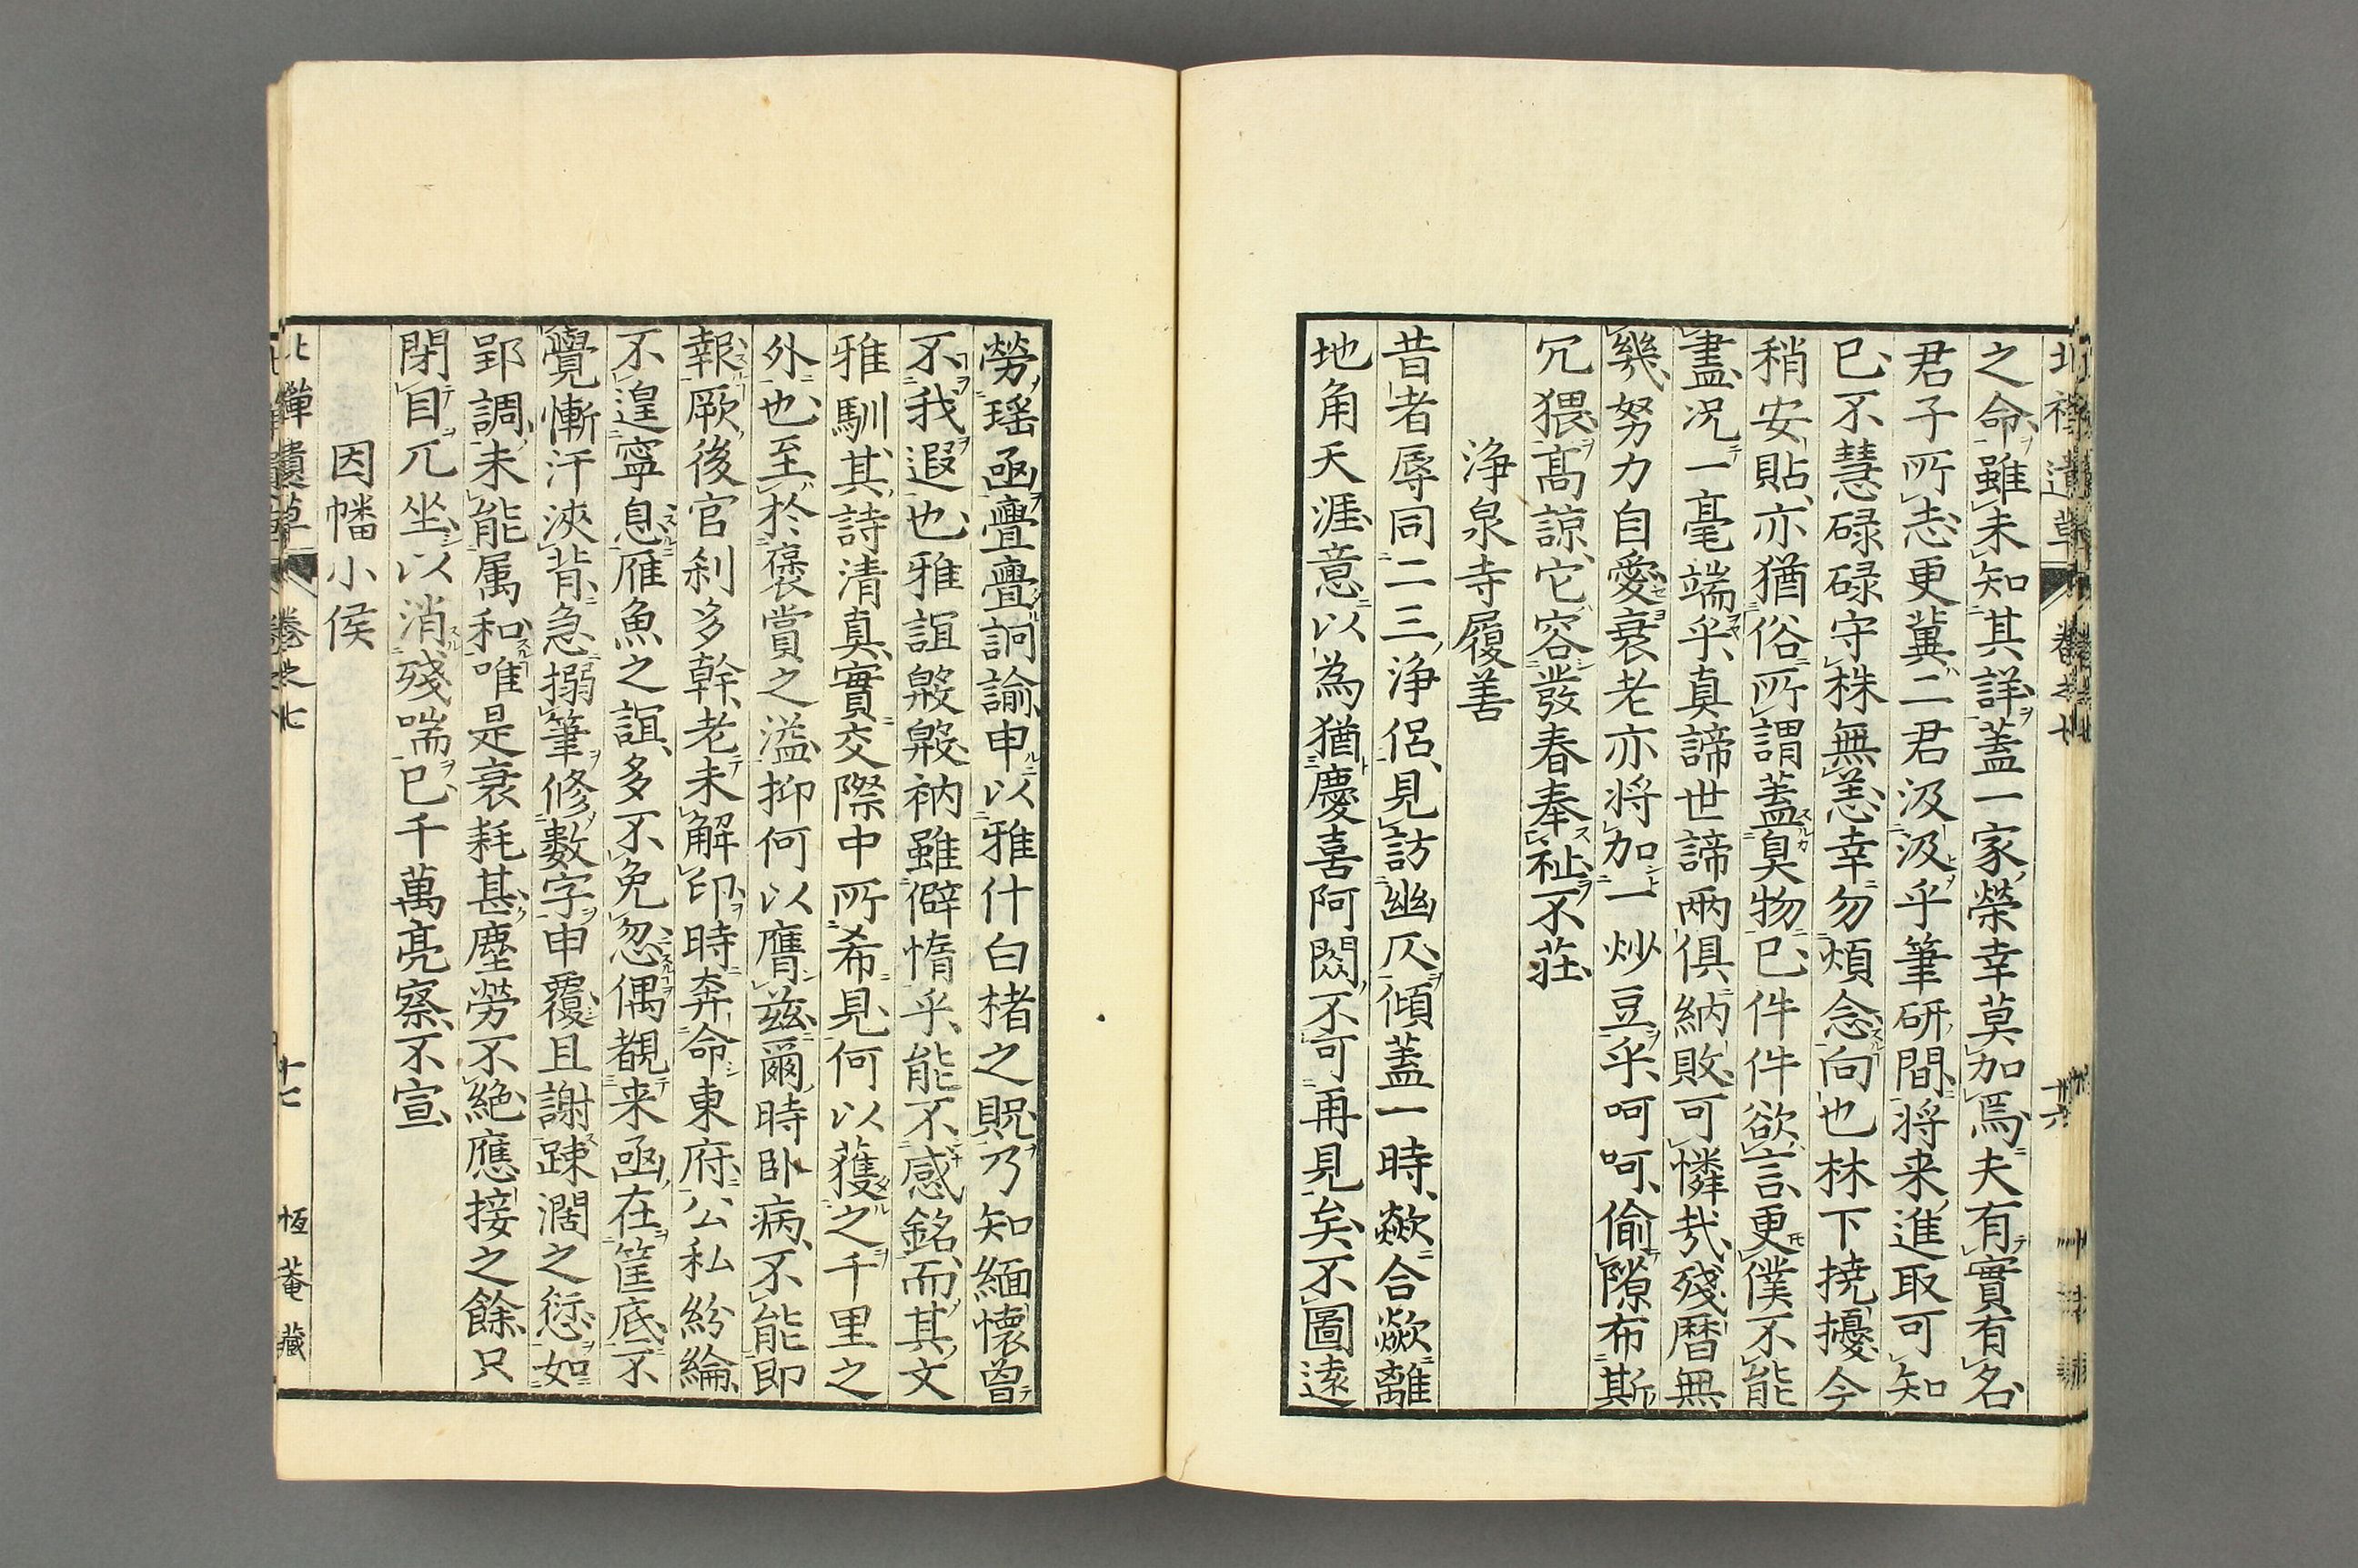 之命雖未知其詳蓋一家榮幸莫加焉夫有實有名
君子所志更冀二君汲汲乎筆研間将来進取可知
已不慧碌碌守株無恙幸勿煩念向也林下撓擾今
稍安貼亦猶俗所謂蓋臭物已件件欲言更僕不能
盡况一毫端乎真諦世諦兩俱納敗可憐哉殘暦無
幾努力自愛衰老亦将加一炒豆乎呵呵偷隙布斯
冗猥高諒它容發春奉祉不莊
浄泉寺履善
昔者辱同二三浄侶見訪幽仄傾蓋一時歘合歘離
地角天涯意以為猶慶喜阿閦不可再見矣不圖遠
勞瑶函亹亹詗諭申以雅什白楮之貺乃知緬懷曽
不我遐也雅誼毿毿衲雖僻惰乎能不感銘而其文
雅馴其詩清真實交際中所希見何以獲之千里之
外也至於褒賞之溢抑何以膺茲爾時卧病不能即
報厥後官刹多幹老未解印時奔命東府公私紛綸
不遑寧息雁魚之誼多不免忽偶覩来函在筐底不
覺慚汗浹背急搦筆修數字申覆且謝踈濶之愆如
郢調未能属和唯是衰耗甚塵勞不絶應接之餘只
閉目兀坐以消殘喘已千萬亮察不宣
因幡小侯
北禪遺草
卷之七
十七
恆菴藏